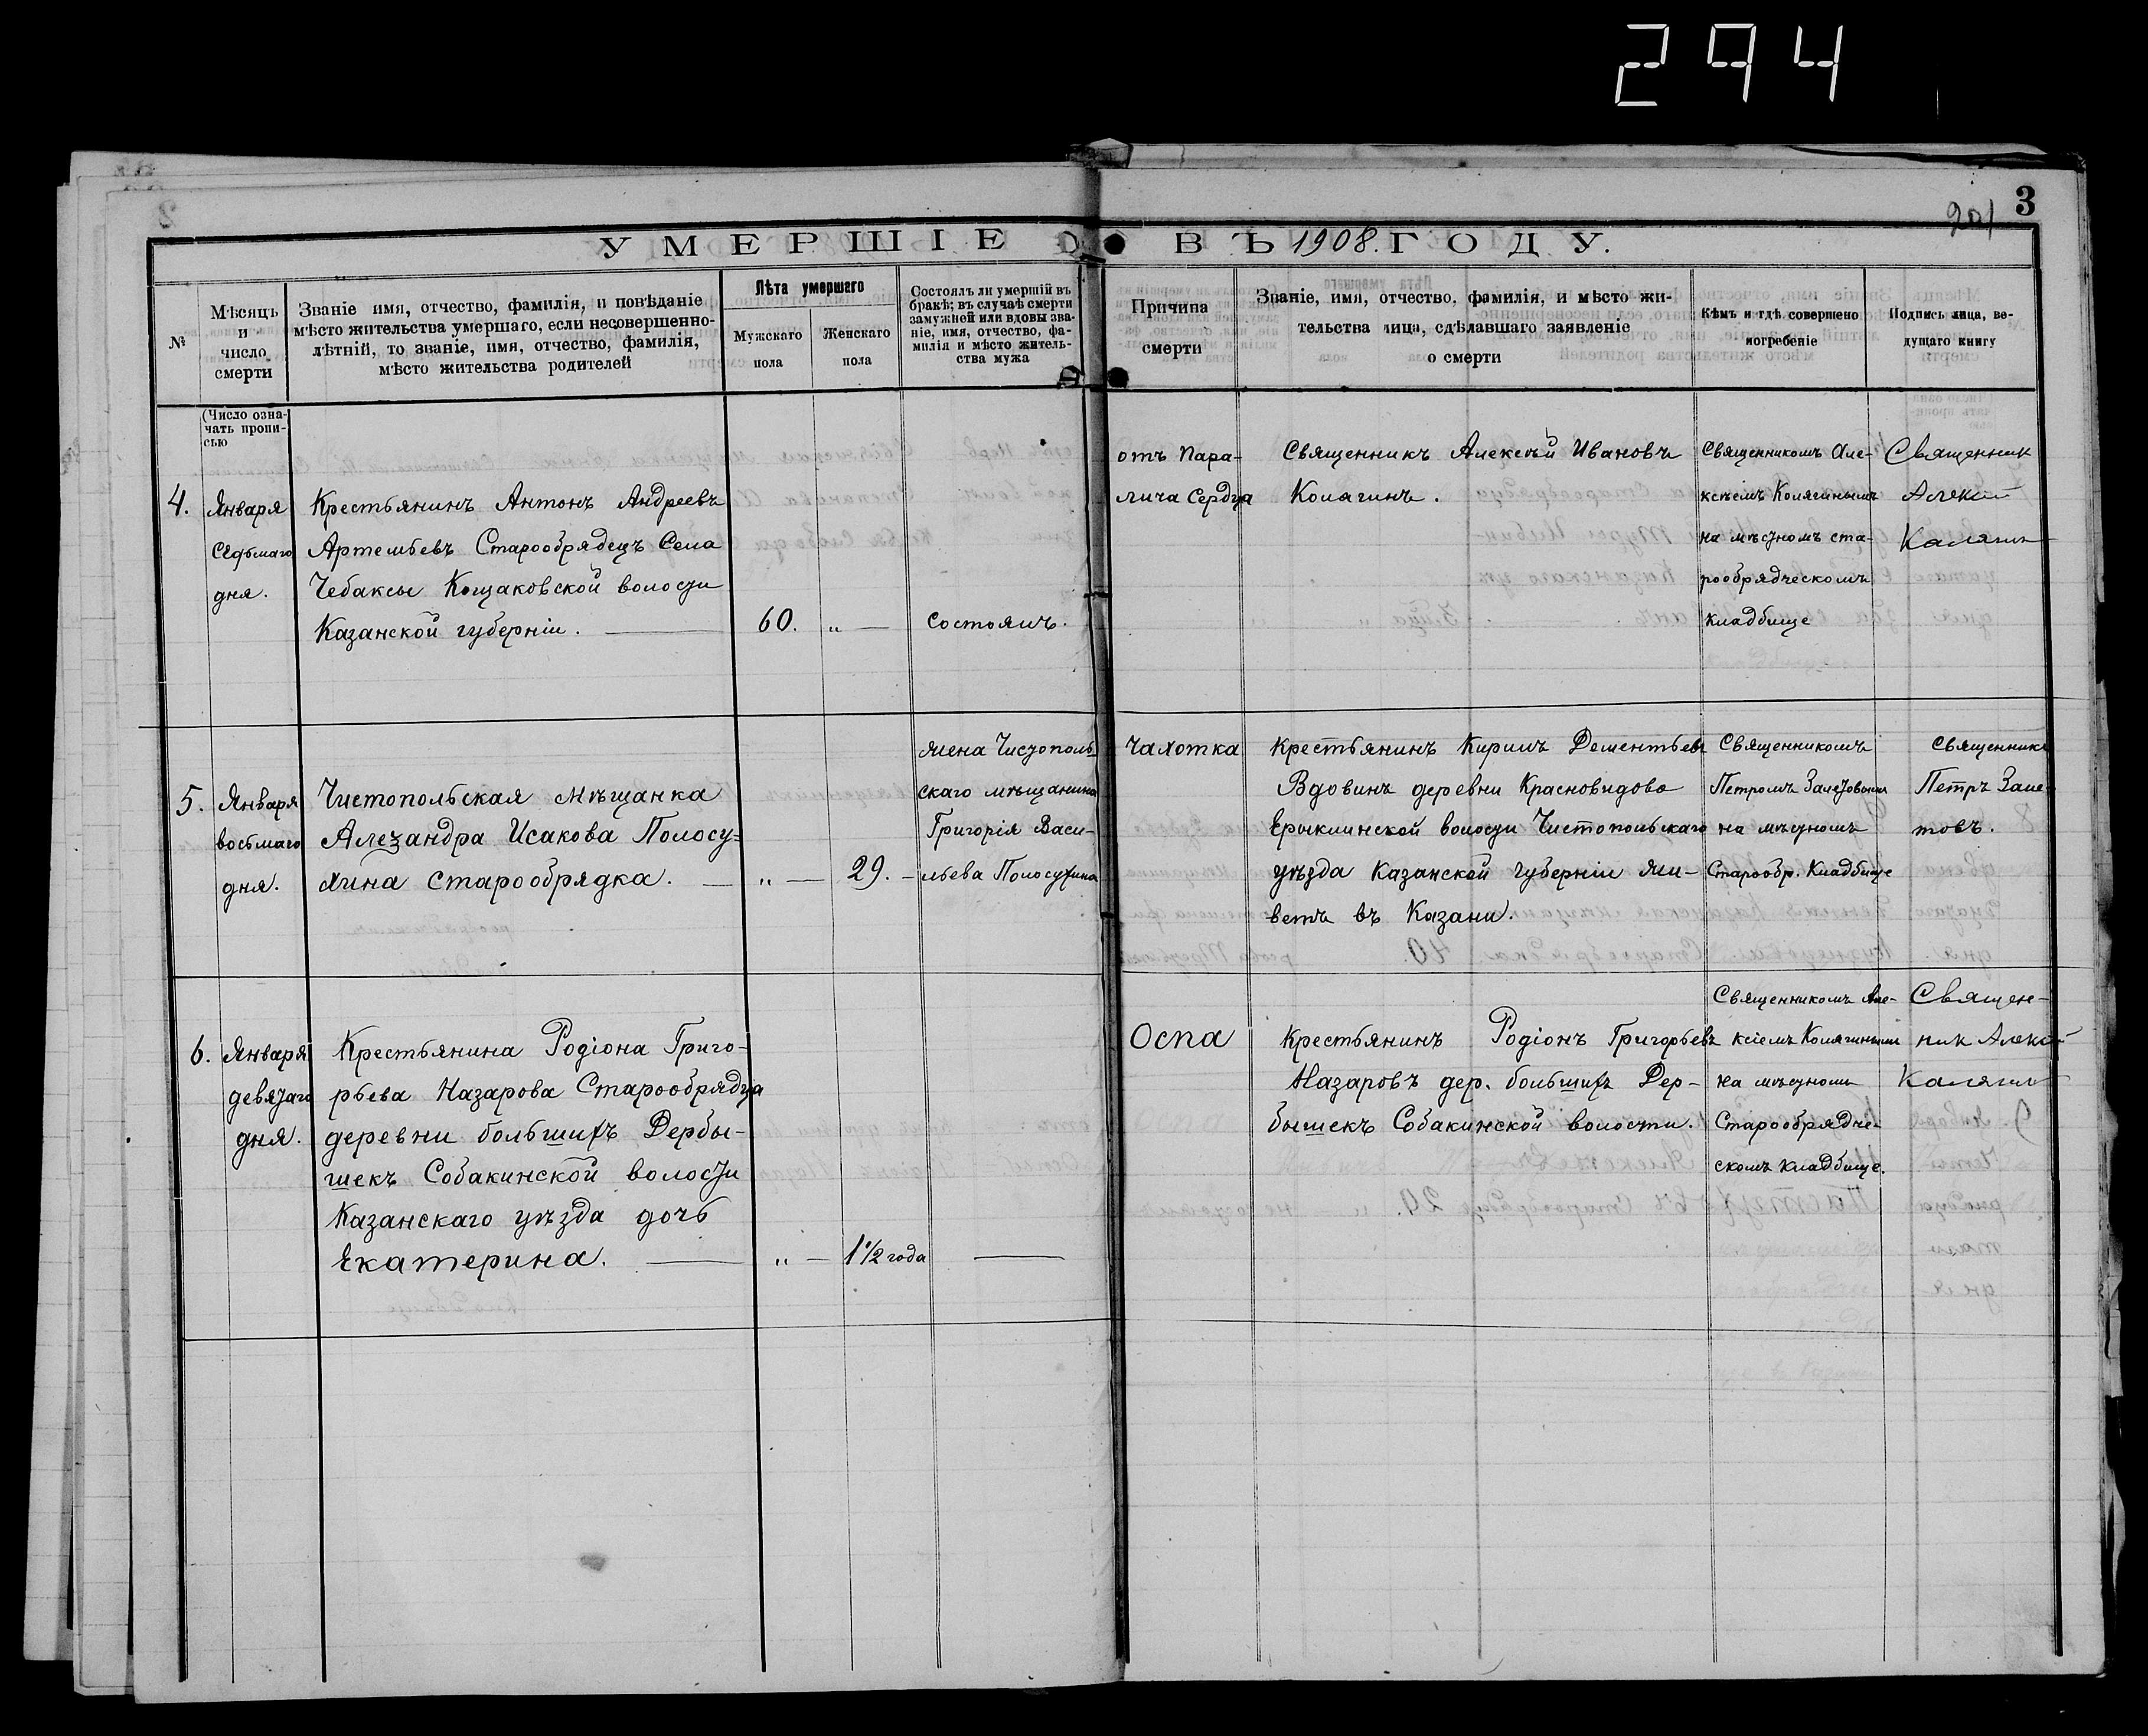 294
3
201
УМЕРШІЕ ВЪ 1908. ГОДУ.
№
Мѣсяцъ
и
число
смерти
Званіе имя, отчество, фамилія, и повѣданіе
мѣсто жительства умершаго, если несовершенно-
лѣтній, то званіе, имя, отчество, фамилія,
мѣсто жительства родителей
Лѣта умершаго
Мужскаго
пола
Женскаго
пола
Состоялъ ли умершій въ
бракѣ; въ случаѣ смерти
замужней или вдовы зва-
ніе, имя, отчество, фа-
милія и мѣсто житель-
ства мужа
Причина
смерти
Званіе, имя, отчество, фамилія, и мѣсто жи-
тельства лица, сдѣлавшаго заявленіе
о смерти
Кѣмъ и гдѣ совершено
погребеніе
Подпись лица, ве-
дущаго книгу
(Число озна-
чать пропи-
сью
4.
Января
Седьмаго
дня.
Крестьянинъ Антонъ Андреевъ
Артемьевъ Старообрядецъ Села
Чебаксы Кощаковской волости
Казанской губерніи.
60.
„
Состоялъ.
отъ пара-
лича Сердца
Священникъ Алексѣй Ивановъ
Колягинъ.
Священникомъ Але-
ксѣемъ Колягинымъ
на мѣстномъ ста-
рообрядческомъ
кладбище
Священник
Алексей
Калягин
5.
Января
восьмаго
дня.
Чистопольская мѣщанка
Александра Исакова Полосу-
хина старообрядка.
„
29.
жена Чистополь
скаго мѣщанина
Григорія Васи-
льева Полосухина
Чахотка
Крестьянинъ Кирилъ Дементьевъ
Вдовинъ деревни Красновидово
Ерыклинской волости Чистопольскаго
уѣзда Казанской губерніи жи-
ветъ въ Казани.
Священникомъ
Петромъ Залетовымъ
на мѣстномъ
Старообр. Кладбище
Священникъ
Петръ Зале-
товъ.
6.
Января
девятаго
дня.
Крестьянина Родіона Григо-
рьева Назарова Старообрядца
деревни большихъ Дербы-
шекъ Собакинской волости
Казанскаго уѣзда дочь
Екатерина.
„
1 1/2 года
Оспа
Крестьянинъ Родіонъ Григорьевъ
Назаровъ дер. большихъ Дер-
бышекъ Собакинской волости.
Священникомъ Але-
ксіемъ Колягинымъ
на мѣстномъ
Старообрядче-
скомъ кладбище.
Священ-
ник Алексей
Калягин